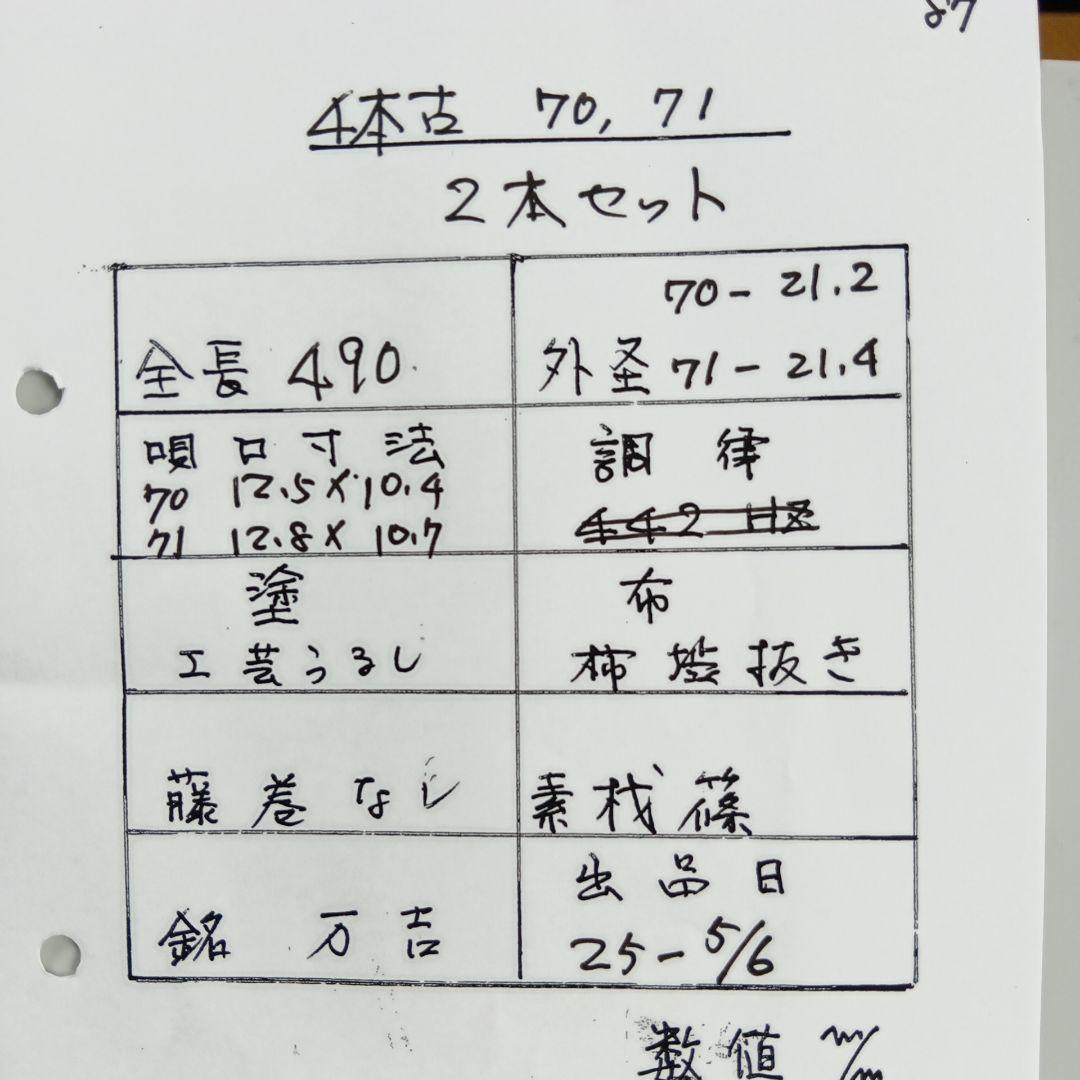 87
4本古 70, 71
2本セット
全長 490
70- 21.2
外圣 71- 21.4
唄口寸法
70 12.5×10.4
71 12.8×10.7
調律
442 Hz
塗
工芸うるし
布
柿渋抜き
藤巻なし
素材篠
銘 万吉
出品日
25-5/6
数値 m/m